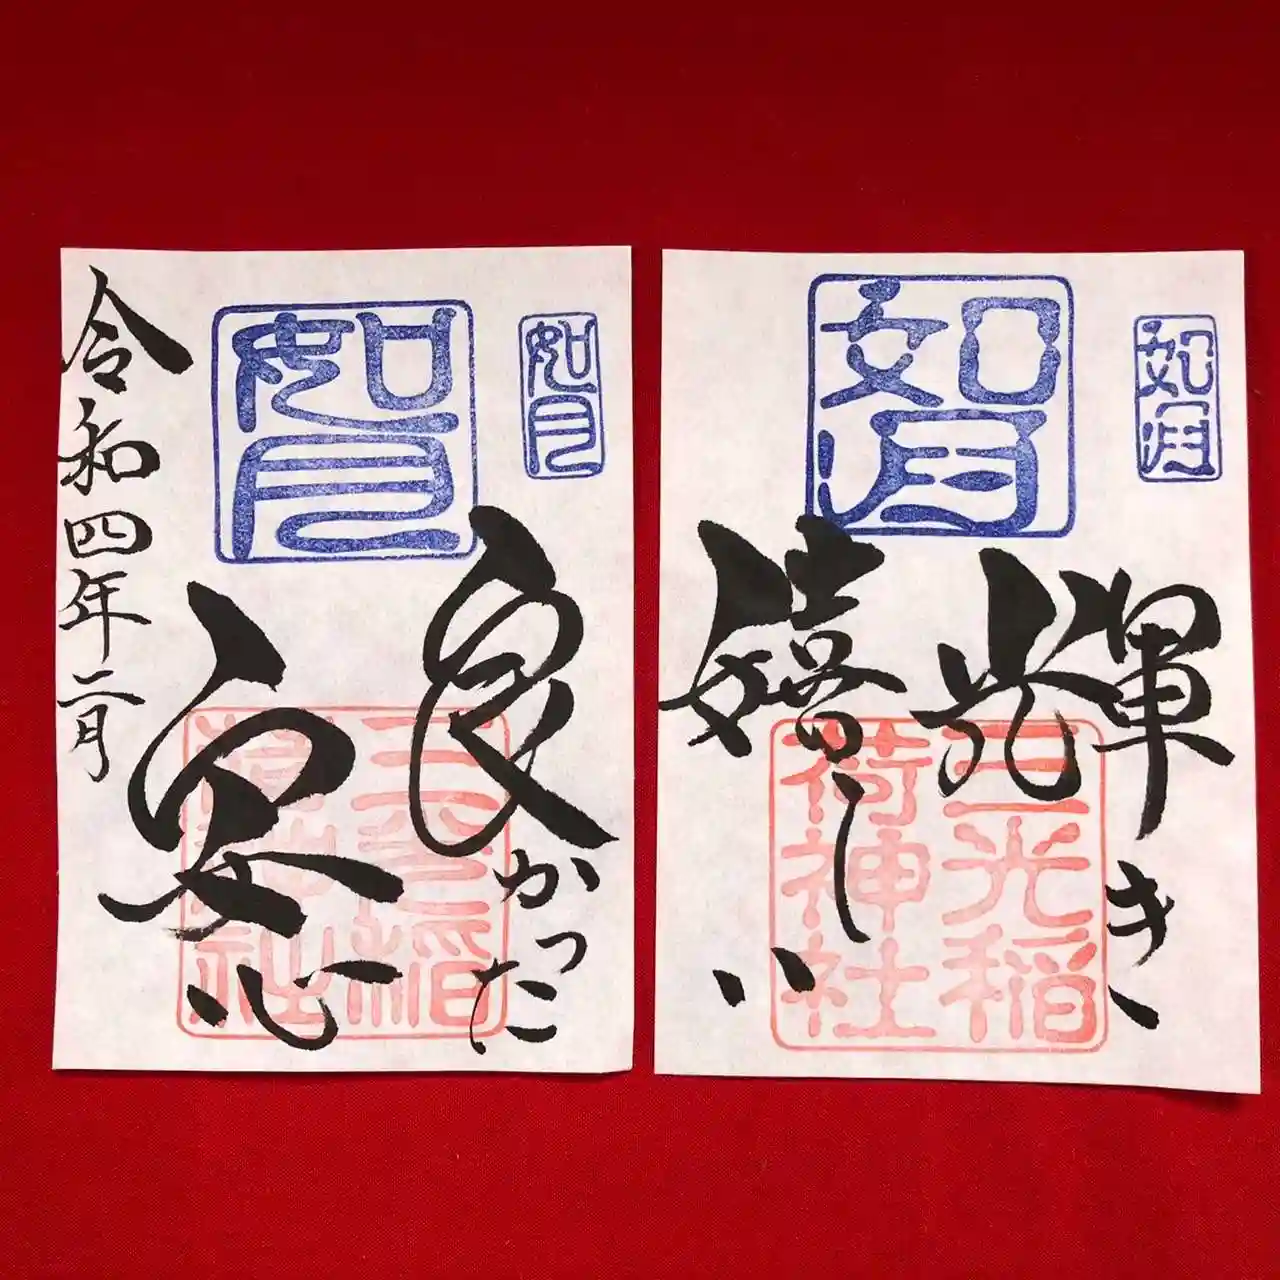 如月
如月
輝き
嬉しい
三光稲
荷神社
如月
如月
良かった
安心
三光稲
荷神社
令和四年二月